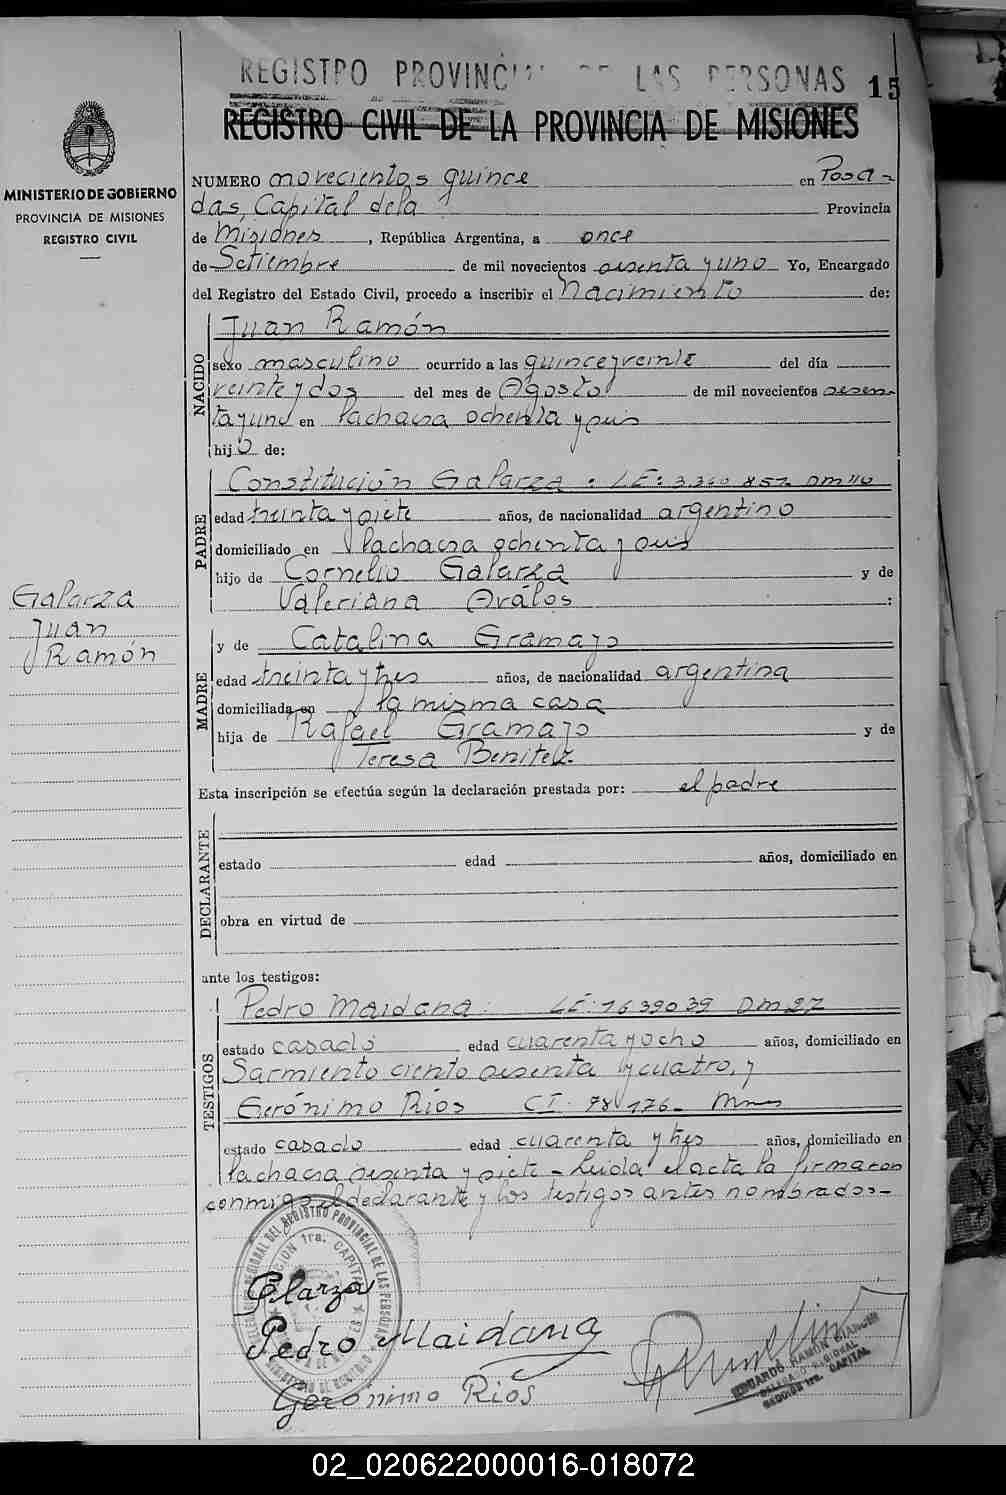 REGISTRO PROVINC LAS PERSONAS
15
REGISTRO CIVIL DE LA PROVINCIA DE MISIONES
MINISTERIO DE GOBIERNO
PROVINCIA DE MISIONES
REGISTRO CIVIL
NUMERO novecientos quince en Posa-
das, Capital de la Provincia
de Misiones, República Argentina, a once
de Setiembre de mil novecientos sesenta y uno Yo, Encargado
del Registro del Estado Civil, procedo a inscribir el Nacimiento de:
NACIDO
Juan Ramón
sexo masculino ocurrido a las quince y veinte del día
veinte y dos del mes de Agosto de mil novecientos sesen-
ta y uno en la chacra ochenta y seis
hijo de:
PADRE
Constitución Galarza. LE: 3.360.857 DM
edad treinta y siete años, de nacionalidad argentino
domiciliado en la chacra ochenta y seis
hijo de Cornelio Galarza y de
Valeriana Avalos :
Galarza
Juan
Ramón
MADRE
y de Catalina Gramajo
edad treinta y tres años, de nacionalidad argentina
domiciliada en la misma casa
hija de Rafael Gramajo y de
Teresa Benitez.
Esta inscripción se efectúa según la declaración prestada por: el padre
DECLARANTE
estado edad años, domiciliado en
obra en virtud de
ante los testigos:
TESTIGOS
Pedro Maidana. LE: 1639039 DM27
estado casado edad cuarenta y ocho años, domiciliado en
Sarmiento ciento sesenta y cuatro, y
Gerónimo Ríos CI. 98176 - Mnes
estado casado edad cuarenta y tres años, domiciliado en
la chacra sesenta y siete - Leida el acta la firmaron
conmigo el declarante y los testigos antes nombrados -
Galarza
Pedro Maidana
Geronimo Rios
EDUARDO RAMON BIANCHI
DELEGADO REGIONAL
SECCION 1ra. CAPITAL
02_020622000016-018072